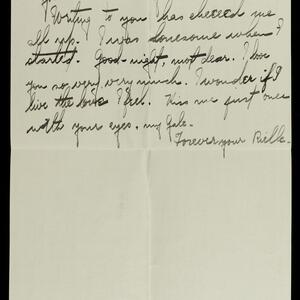 Writing to you has cheered me
all up. I was lonesome when I
started. Good-night, my dear. I love
you so very, very much. I wonder if I
live the love I feel. Kiss me just once
with your eyes, my
Forever your